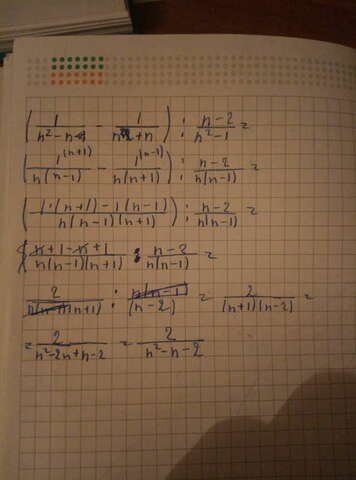 (1/(n²-n) - 1/(n²+n)) : (n-2)/(n²-1) =
(1^(n+1)/(n(n-1)) - 1^(n-1)/(n(n+1))) : (n-2)/(n(n-1)) =
(1·(n+1)-1(n-1)/(n(n-1)(n+1))) : (n-2)/(n(n-1)) =
(n+1-n+1)/(n(n-1)(n+1)) : (n-2)/(n(n-1)) =
2/(n(n-1)(n+1)) : n(n-1)/(n-2) = 2/((n+1)(n-2)) =
= 2/(n²-2n+n-2) = 2/(n²-n-2)